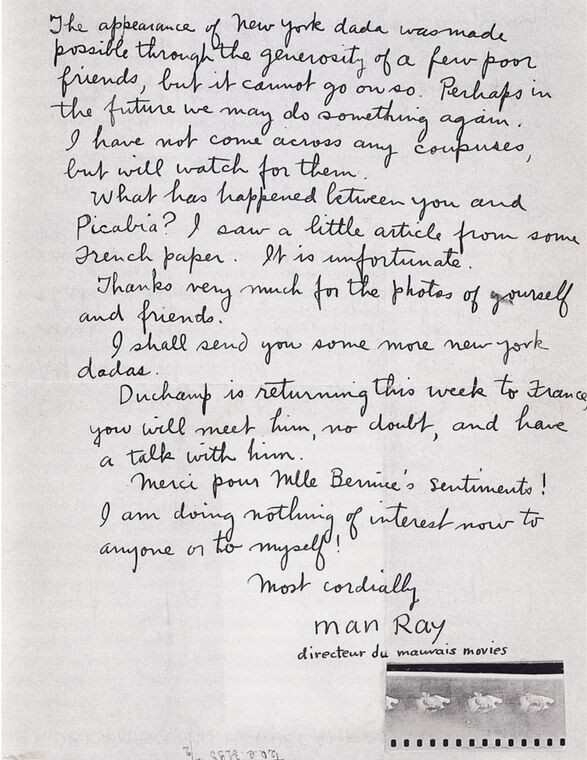 The appearance of New york dada was made
possible through the generosity of a few poor
friends, but it cannot go on so. Perhaps in
the future we may do something again.
I have not come across any coupuses,
but will watch for them.
What has happened between you and
Picabia? I saw a little article from some
French paper. It is unfortunate.
Thanks very much for the photos of yourself
and friends.
I shall send you some more new york
dadas.
Duchamp is returning this week to France
you will meet him, no doubt, and have
a talk with him.
Merci pour Mlle Bernice's sentiments!
I am doing nothing of interest now to
anyone or to myself!
Most cordially
man Ray
directeur du mauvais movies